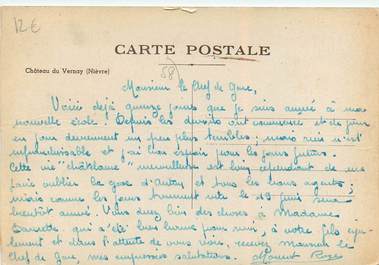 12€
CARTE POSTALE
Château du Vernay (Nièvre)
(58)
Monsieur le Chef de Gare,
Voici déjà quinze jours que je suis arrivé à ma
nouvelle école! Depuis les devoirs ont commencé et de jour
en jour deviennent un peu plus terribles; mais rien n'est
insurmontable et j'ai bon espoir pour les jours futurs.
Cette vie "château" merveilleuse est loin cependant de me
faire oublier la gare d' et tous les bons agents;
mais comme les jours tournent vite le 13 juin sera
bientôt arrivé. Vous direz bien des choses à Madame
qui a été bonne pour moi, à votre fils également
et dans l'attente de vous voir, recevez monsieur le
chef de Gare, mes empressées salutations.